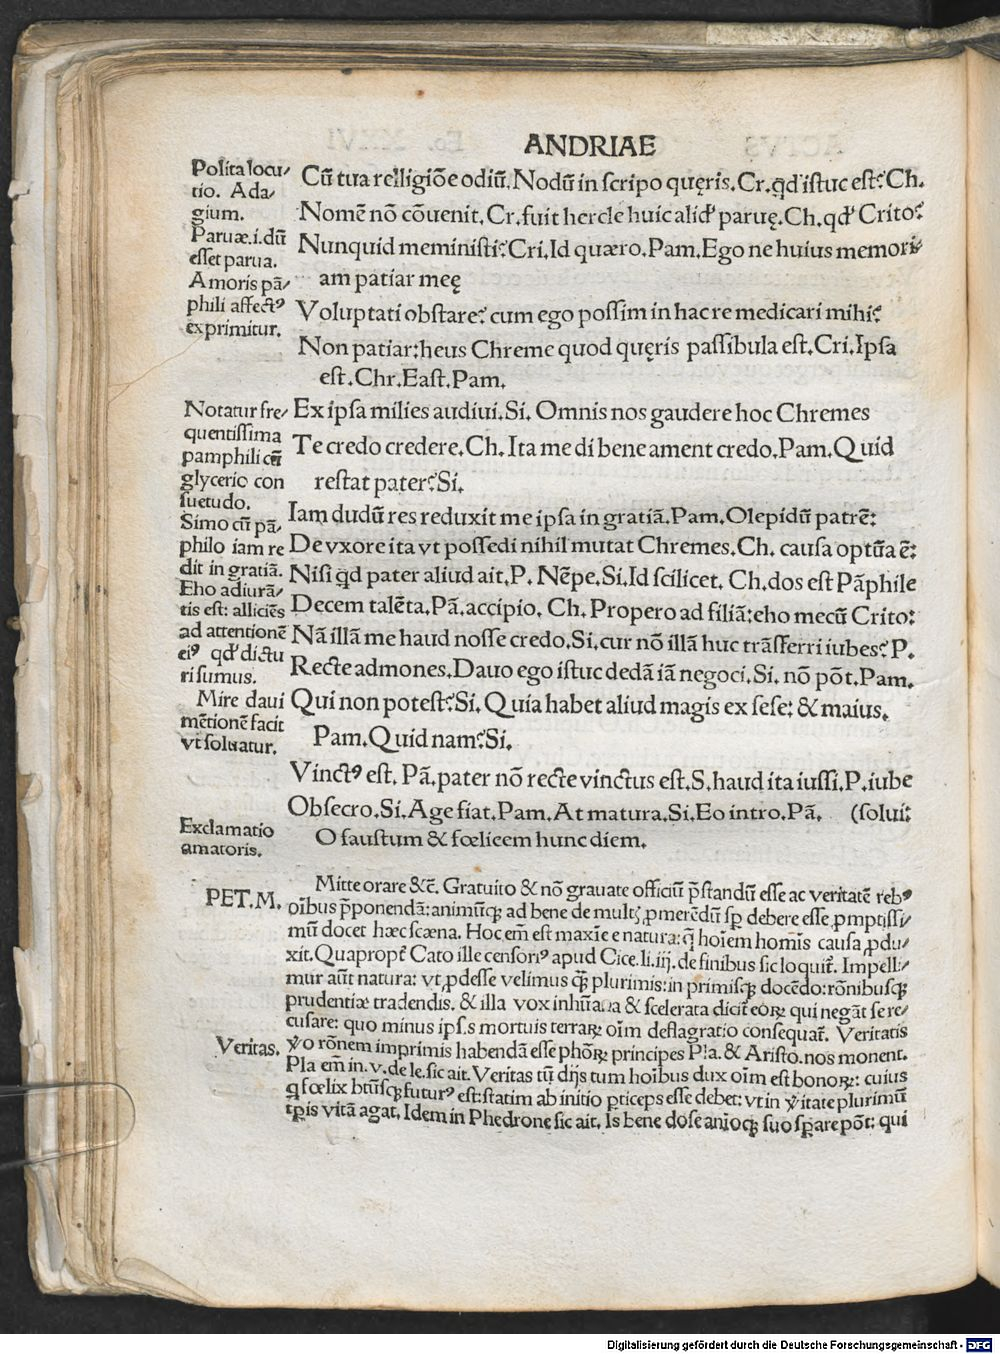 ANDRIAE
Polita locu/
tio. Ada/
gium.
Paruæ.i.dū
esset parua.
Amoris pā/
phili affectꝰ
exprimitur.
Cū tua relligiōe odiū. Nodū in scripo quęris. Cr. qd' istuc est? Ch.
Nomē nō cōuenit. Cr. fuit hercle huic aliđ paruę. Ch. qđ Crito?
Nunquid meministi? Cri. Id quæro. Pam. Ego ne huius memori/
am patiar meę
Voluptati obstare? cum ego possim in hac re medicari mihi?
Non patiar: heus Chreme quod quęris passibula est. Cri. Ipsa
est. Chr. East. Pam.
Notatur fre/
quentissima
pamphili cū
glycerio con
suetudo.
Simo cū pā/
philo iam re
dit in gratiā.
Eho adiurā/
tis est: alliciēs
ad attentionē
eiꝰ qđ dictu
ri sumus.
Mire daui
mētionē facit
vt soluatur.
Ex ipsa milies audiui. Si. Omnis nos gaudere hoc Chremes
Te credo credere. Ch. Ita me di bene ament credo. Pam. Quid
restat pater? Si.
Iam dudū res reduxit me ipsa in gratiā. Pam. Olepidū patrē:
De vxore ita vt possedi nihil mutat Chremes. Ch. causa optūa ē:
Nisi qđ pater aliud ait. P. Nēpe. Si. Id scilicet. Ch. dos est Pāphile
Decem talēta. Pā. accipio. Ch. Propero ad filiā: eho mecū Crito:
Nā illā me haud nosse credo. Si. cur nō illā huc trāsferri iubes? P.
Recte admones. Dauo ego istuc dedā iā negoci. Si. nō pōt. Pam.
Qui non potest? Si. Quia habet aliud magis ex sese: & maius.
Pam. Quid nam? Si.
Vinctꝰ est. Pā. pater nō recte vinctus est. S. haud ita iussi. P. iube
Obsecro. Si. Age fiat. Pam. At matura. Si. Eo intro. Pā. (solui:
O faustum & fœlicem hunc diem.
Exclamatio
amatoris.
PET. M.
Mitte orare &c̄. Gratuito & nō grauate officiū p̄standū esse ac veritatē rebꝰ
oībus p̄ponendā: animūqꝫ ad bene de multꝭ ꝓmerēdū sꝑ debere esse ꝓmptissi/
mū docet hæc scæna. Hoc em̄ est maxīe e natura: q̄ hoīem homīs causa ꝓdu/
xit. Quaproptr̄ Cato ille censoriꝰ apud Cice. li. iij. de finibus sic loquit̄. Impelli/
mur aūt natura: vt ꝓdesse velimus q̄ꝫ plurimis: in primisqꝫ docēdo: rōnibusqꝫ
prudentiæ tradendis. & illa vox inhūana & scelerata dicit̄ eoꝝ qui negāt se re/
cusare: quo minus ipsis mortuis terraꝝ oīm deflagratio consequat̄. Veritatis
Veritas.
ꝟo rōnem imprimis habendā esse phōꝝ principes Pla. & Aristo. nos monent.
Pla em̄ in. v. de le. sic ait. Veritas tū dijs tum hoībus dux oīm est bonoꝝ: cuius
q̄ fœlix btūsqꝫ futurꝰ est: statim ab initio ꝑticeps esse debet: vt in ꝟitate plurimū
tp̄is vitā agat. Idem in Phedrone sic ait. Is bene dose anīoqꝫ suo sꝑare pōt: qui
Digitalisierung gefördert durch die Deutsche Forschungsgemeinschaft - DFG